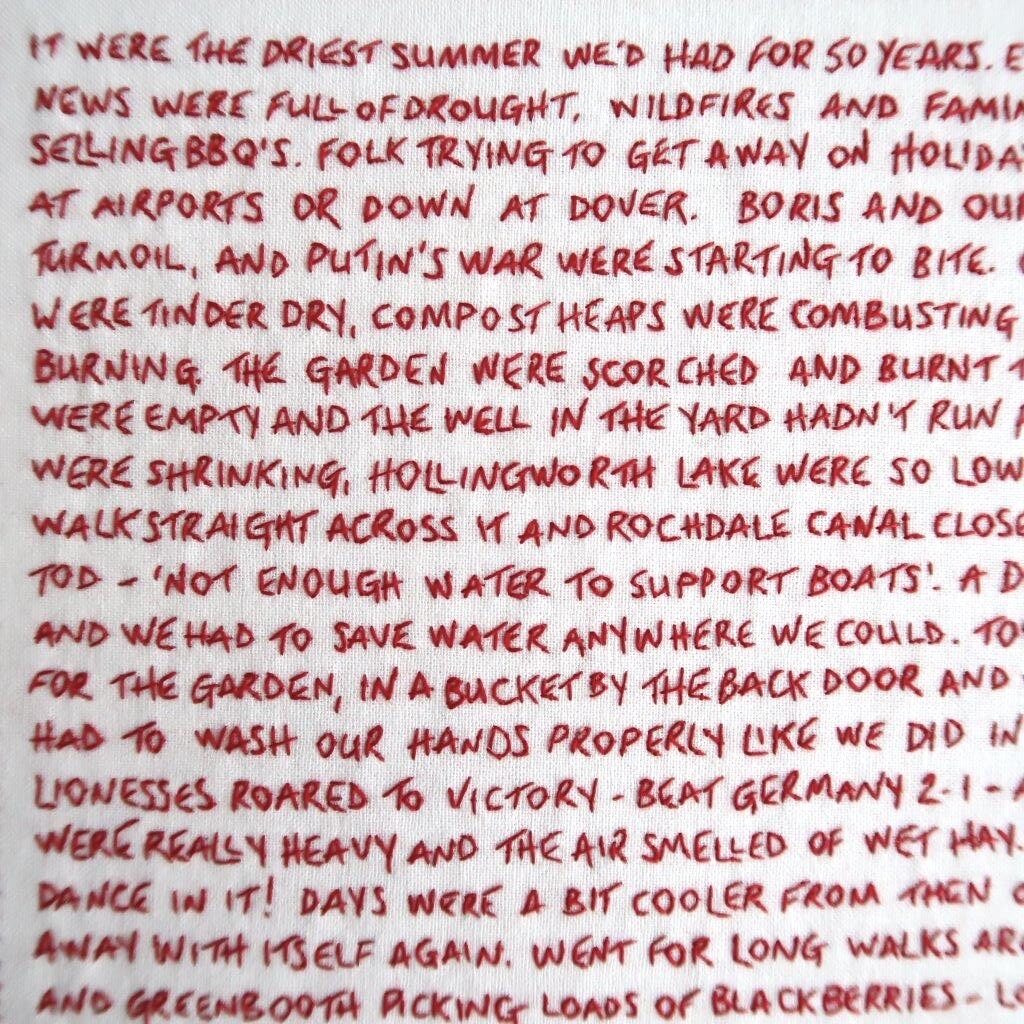 IT WERE THE DRIEST SUMMER WE'D HAD FOR 50 YEARS. E
NEWS WERE FULL OF DROUGHT, WILDFIRES AND FAMIN
SELLING BBQ'S. FOLK TRYING TO GET AWAY ON HOLIDAY
AT AIRPORTS OR DOWN AT DOVER. BORIS AND OUR
TURMOIL, AND PUTIN'S WAR WERE STARTING TO BITE.
WERE TINDER DRY, COMPOST HEAPS WERE COMBUSTING
BURNING. THE GARDEN WERE SCORCHED AND BURNT T
WERE EMPTY AND THE WELL IN THE YARD HADN'T RUN
WERE SHRINKING, HOLLINGWORTH LAKE WERE SO LOW
WALK STRAIGHT ACROSS IT AND ROCHDALE CANAL CLOSE
TOD - 'NOT ENOUGH WATER TO SUPPORT BOATS'. A D
AND WE HAD TO SAVE WATER ANYWHERE WE COULD. TO
FOR THE GARDEN, IN A BUCKET BY THE BACK DOOR AND
HAD TO WASH OUR HANDS PROPERLY LIKE WE DID IN
LIONESSES ROARED TO VICTORY - BEAT GERMANY 2-1 - A
WERE REALLY HEAVY AND THE AIR SMELLED OF WET HAY.
DANCE IN IT! DAYS WERE A BIT COOLER FROM THEN O
AWAY WITH ITSELF AGAIN. WENT FOR LONG WALKS ARO
AND GREENBOOTH PICKING LOADS OF BLACKBERRIES - LO